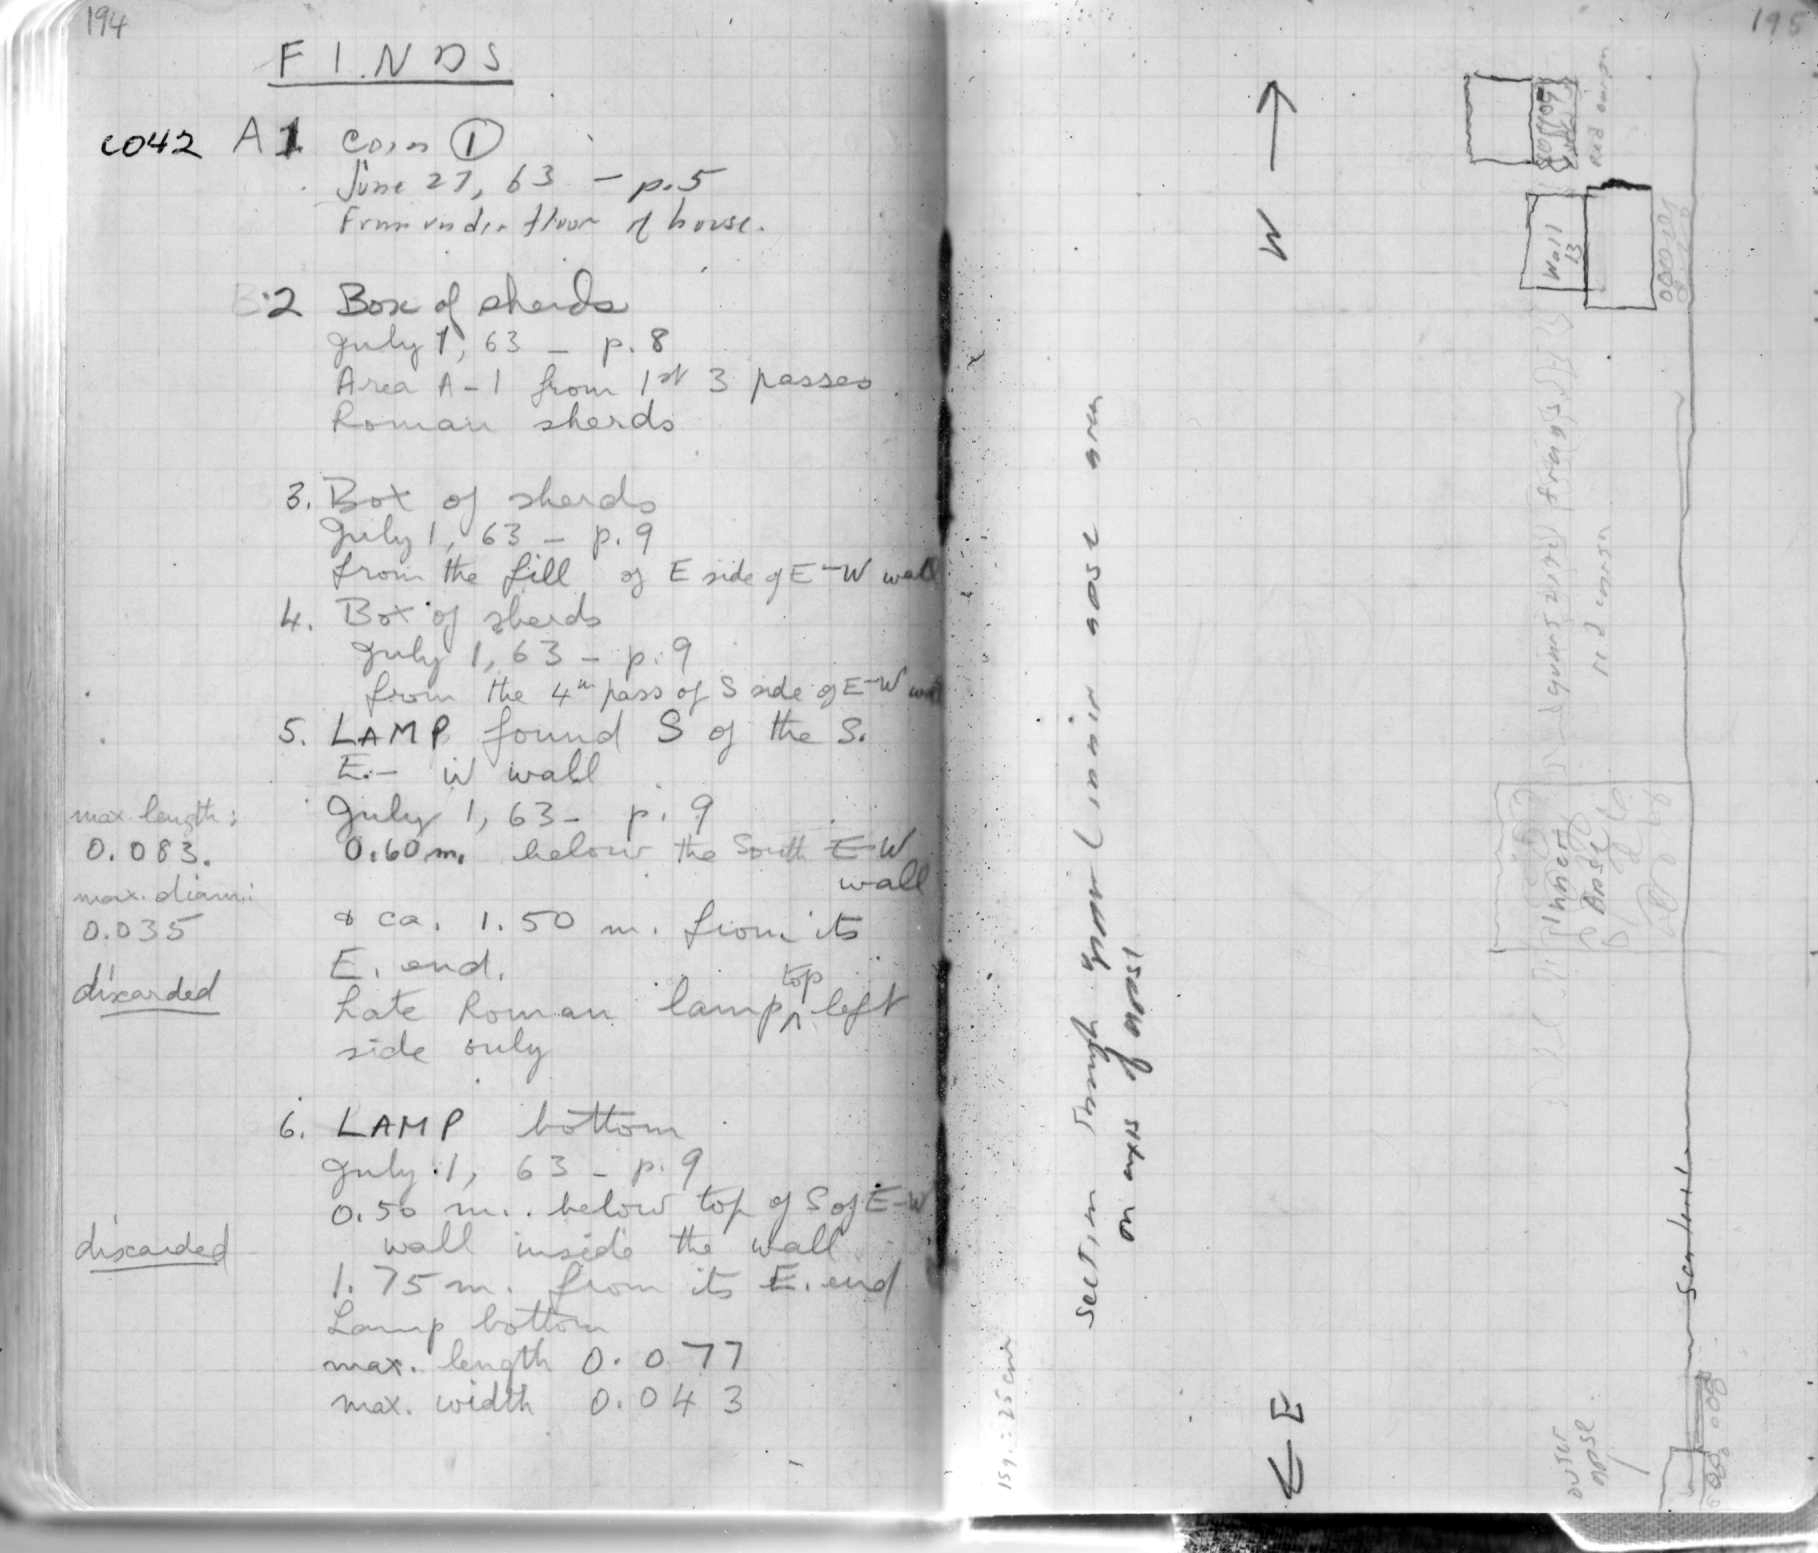 194
FINDS
C042 A1 Coin ①
June 27, 63 - p.5
From under floor of house.
B2 Box of sherds
July 1, 63 - p. 8
Area A-1 from 1st 3 passes
Roman sherds
3. Box of sherds
July 1, 63 - p. 9
from the fill of E side of E-W wall
4. Box of sherds
July 1, 63 - p. 9
from the 4th pass of S side of E-W wall
5. LAMP found S of the S.
E.- W wall
July 1, 63 - p. 9
0.60 m. below the South E-W
wall
& ca. 1.50 m. from its
E. end.
Late Roman lamp top left
side only
max. length:
0.083.
max. diam.:
0.035
discarded
6. LAMP bottom
July 1, 63 - p. 9
0.50 m. below top of S of E-W
wall inside the wall
1.75 m. from its E. end
Lamp bottom
max. length 0.077
max. width 0.043
discarded
195
section through gymn / main apse area
on axis of apses
W
E
Wall
13
red cousin
inner
Apse
outer
apse